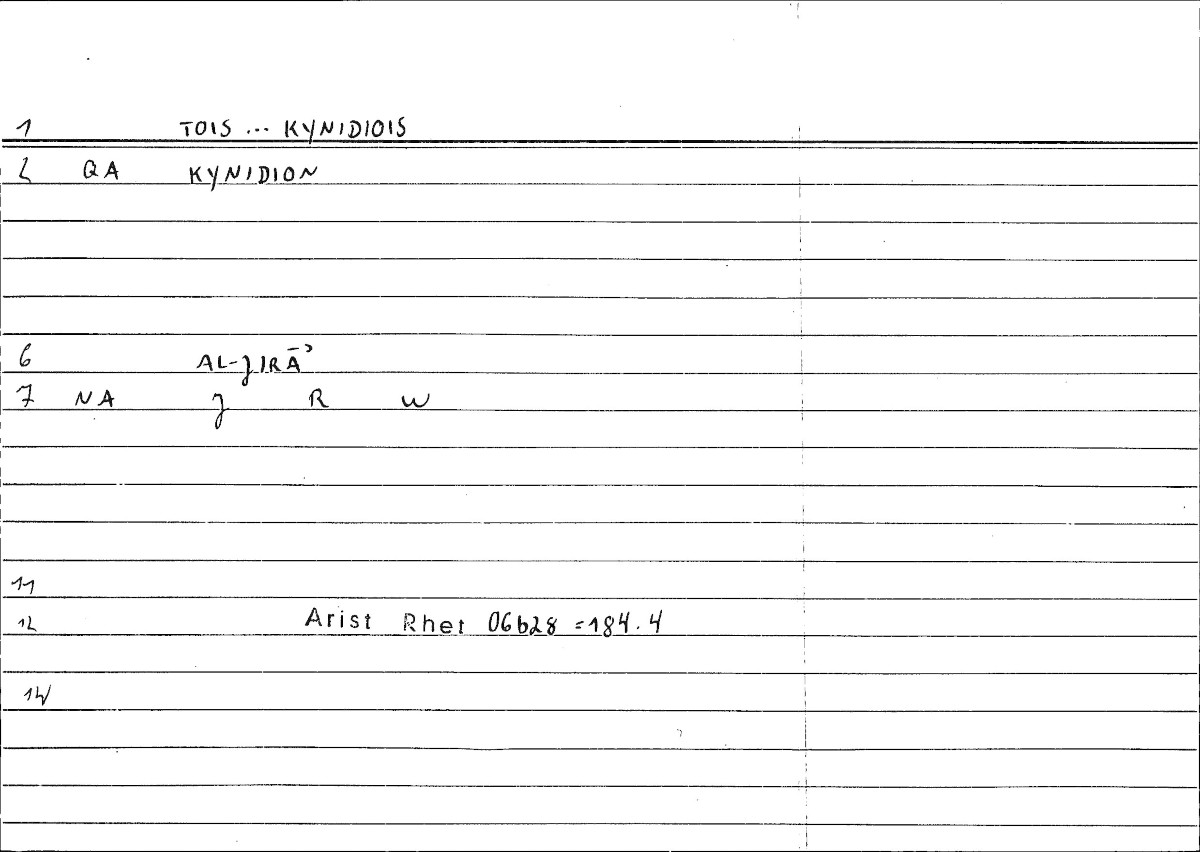 1 TOIS ... KYNIDIOIS
2 QA KYNIDION
6 AL-JIRĀʾ
7 NA J R W
11
12 Arist Rhet 06b28 =184.4
14